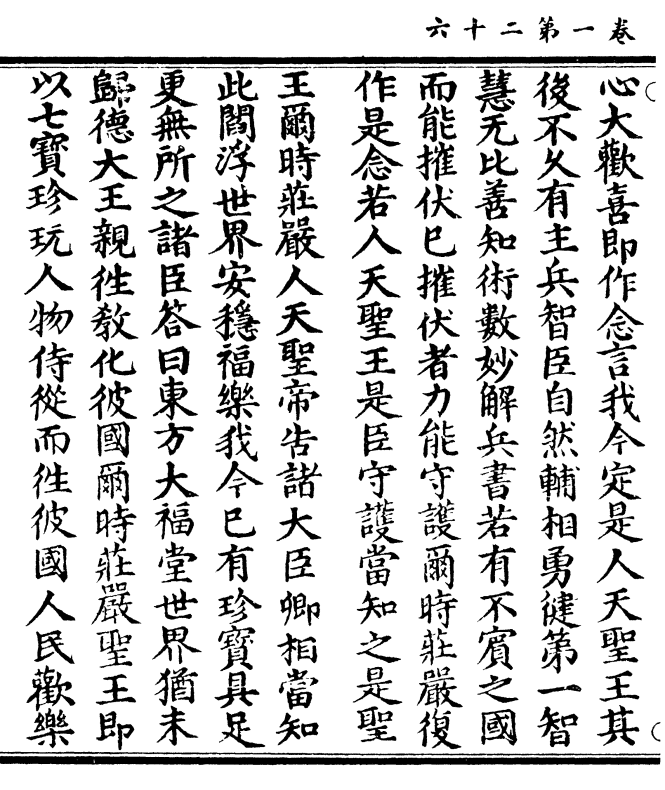 卷一第二十六
心大歡喜即作念言我今定是人天聖王其
後不久有主兵智臣自然輔相勇健第一智
慧无比善知術數妙解兵書若有不賓之國
而能摧伏已摧伏者力能守護爾時莊嚴復
作是念若人天聖王是臣守護當知之是聖
王爾時莊嚴人天聖帝告諸大臣卿相當知
此閻浮世界安穩福樂我今已有珍寶具足
更無所之諸臣答曰東方大福堂世界猶未
歸德大王親徃教化彼國爾時莊嚴聖王即
以七寶珍玩人物侍從而徃彼國人民歡樂